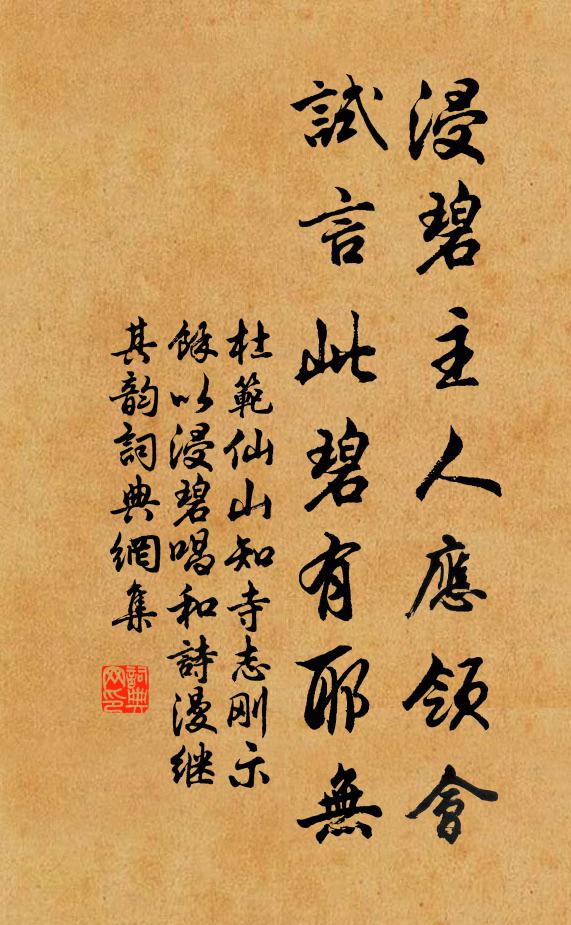 浸碧主人應領會
試言此碧有耶無
杜範仙山知寺志刚示
餘以浸碧唱和詩漫继
其韵詞典網集
詞典网印